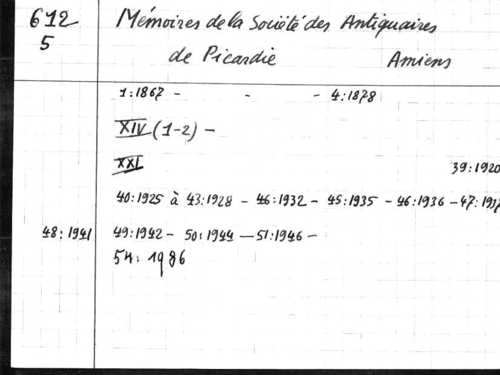 612 Mémoires de la Société des Antiquaires
5 de Picardie Amiens
1:1867 - - - 4:1878
XIV (1-2) -
XXI 39:1920
40:1925 à 43:1928 - 46:1932 - 45:1935 - 46:1936 - 47:193
48:1941 49:1942 - 50:1944 - 51:1946 -
54: 1986